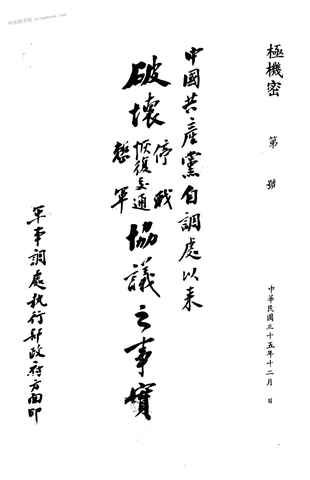 極機密 第 號
中華民國三十五年十二月 日
中國共產黨自調處以來
破壞停戰恢復交通整軍協議之事實
軍事調處執行部政府方面印